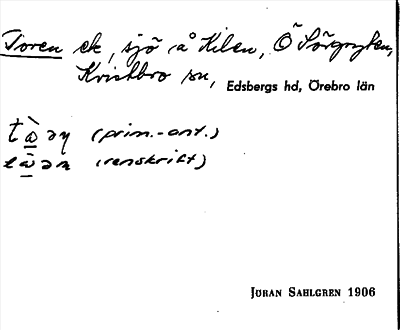 Toren ek, sjö å Kilen, Ö Sörgryten,
Kristbro sn, Edsbergs hd, Örebro län
(prim.-ant.)
(renskrift)
JÖRAN SAHLGREN 1906